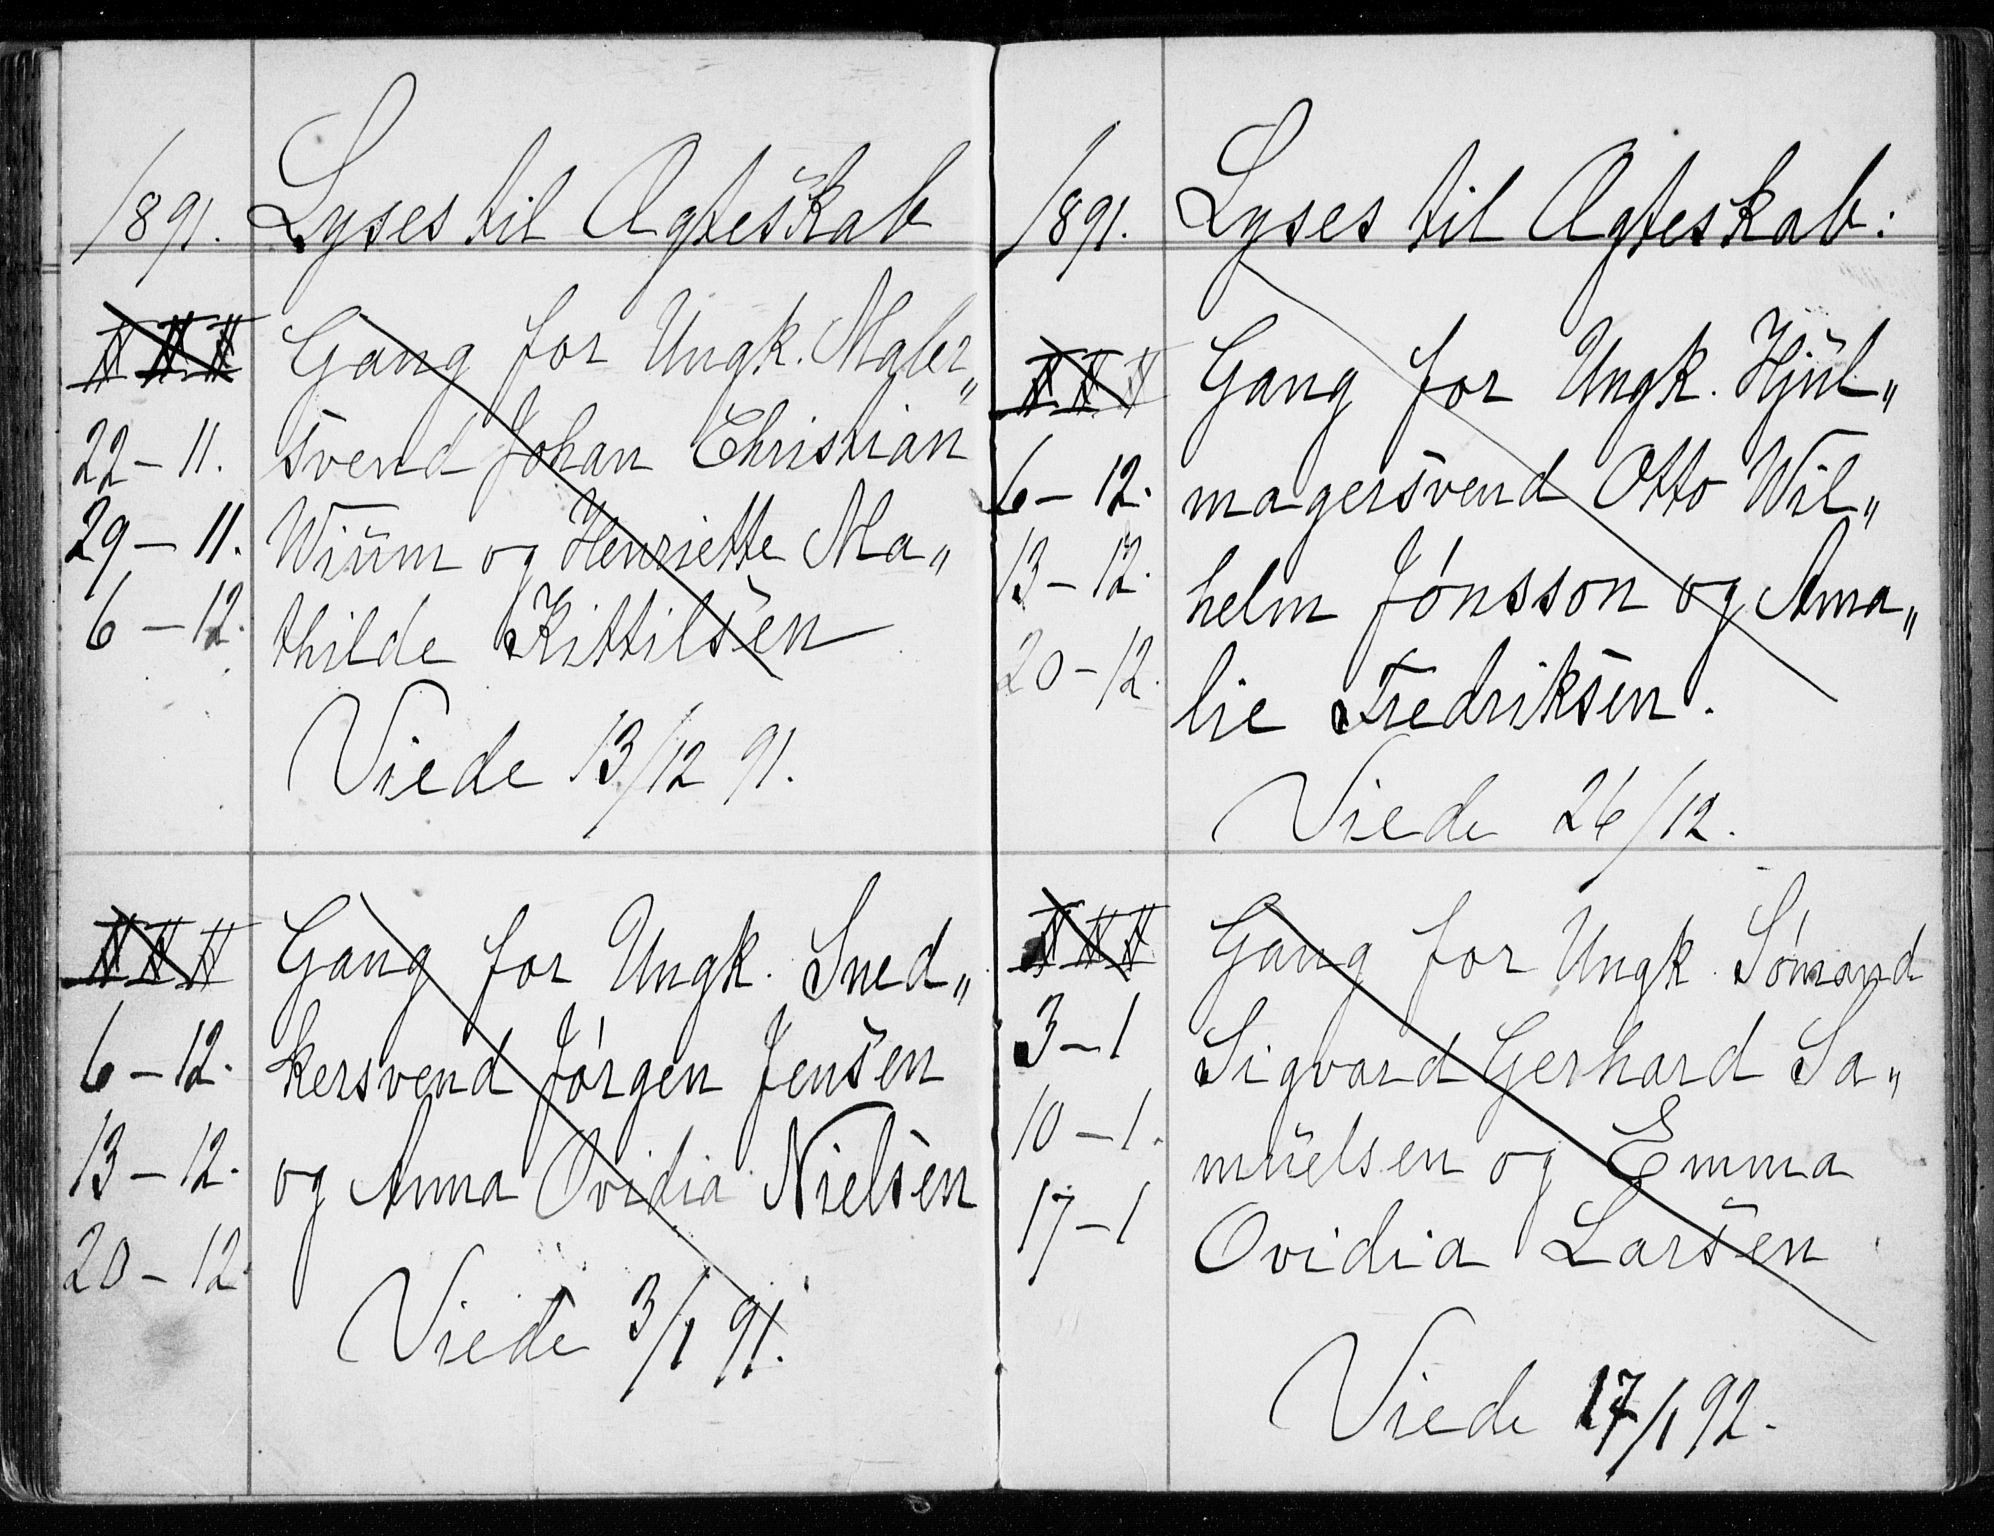 1891. Lyses til Ægteskab
I II III Gang for Ungk. Maler„
22 – 11. svend Johan Christian
29 – 11. Wiüm og Henriette Ma„
6 – 12. thilde Kittilsen
Viede 13/12 91.
I II III Gang for Ungk. Sned„
6 – 12. kersvend Jørgen Jensen
13 – 12. og Anna Ovidia Nielsen
20 – 12.
Viede 3/1 91.
1891. Lyses til Ægteskab:
I II III Gang for Ungk. Hjül„
6 – 12. magersvend Otto Wil„
13 – 12. helm Jónsson og Ama„
20 – 12. lie Fredriksen.
Viede 26/12.
I II III Gang for Ungk. Sømand
3 – 1 Sigvard Gerhard Sa„
10 – 1. müelsen og Emma
17 – 1 Ovidia Larsen
Viede 17/1 92.